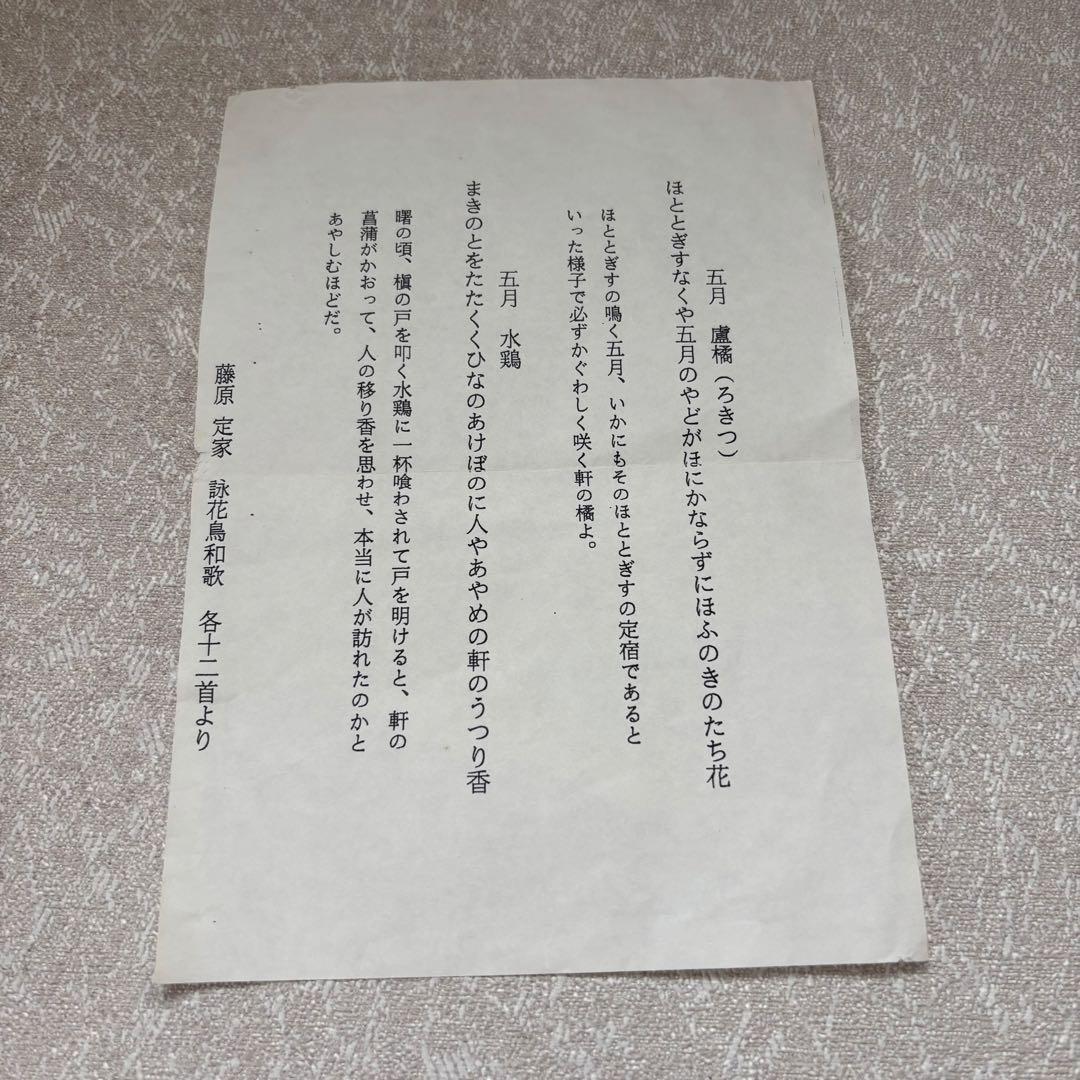 五月　盧橘（ろきつ）
ほととぎすなくや五月のやどがほにかならずにほふのきのたち花
ほととぎすの鳴く五月、いかにもそのほととぎすの定宿であると
いった様子で必ずかぐわしく咲く軒の橘よ。
五月　水鶏
まきのとをたたくくひなのあけぼのに人やあやめの軒のうつり香
曙の頃、槇の戸を叩く水鶏に一杯喰わされて戸を明けると、軒の
菖蒲がかおって、人の移り香を思わせ、本当に人が訪れたのかと
あやしむほどだ。
藤原 定家　詠花鳥和歌　各十二首より